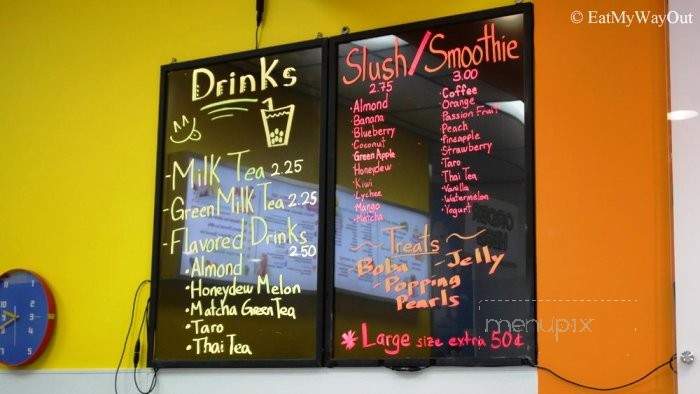 © EatMyWayOut
Drinks
- Milk Tea 2.25
- Green Milk Tea 2.25
- Flavored Drinks 2.50
• Almond
• Honeydew Melon
• Matcha Green Tea
• Taro
• Thai Tea
Slush/Smoothie
2.75
• Almond
• Banana
• Blueberry
• Coconut
• Green Apple
• Honeydew
• Kiwi
• Lychee
• Mango
• Matcha
3.00
• Coffee
• Orange
• Passion Fruit
• Peach
• Pineapple
• Strawberry
• Taro
• Thai Tea
• Vanilla
• Watermelon
• Yogurt
~ Treats ~
- Boba - Jelly
- Popping Pearls
* Large size extra 50¢
menupix